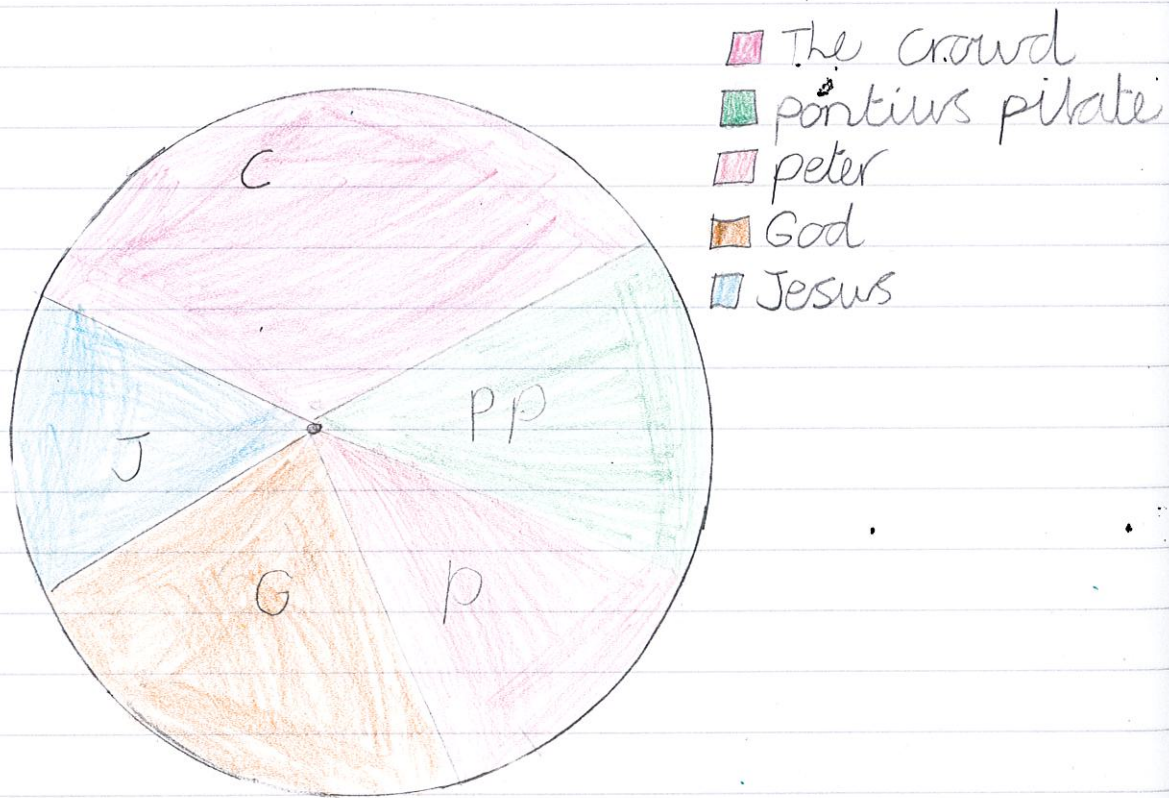 The Crowd
pontius pilate
peter
God
Jesus
C
PP
J
G
P